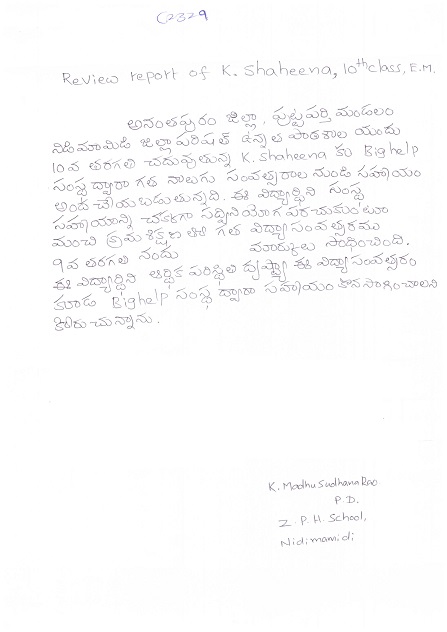 C2329
Review report of K. Shaheena, 10th class, E.M.
అనంతపురం జిల్లా, పుట్టపర్తి మండలం
నిడిమామిడి జిల్లాపరిషత్ ఉన్నత పాఠశాల యందు
10వ తరగతి చదువుతున్న K. Shaheena కు Bighelp
సంస్థ ద్వారా గత నాలుగు సంవత్సరాల నుండి సహాయం
అంద చేయబడుతున్నది. ఈ విద్యార్థిని సంస్థ
సహాయాన్ని చక్కగా సద్వినియోగ పరచుకుంటూ
మంచి క్రమశిక్షణ తో గత విద్యాసంవత్సరము
9వ తరగతి నందు మార్కులు సాధించింది.
ఈ విద్యార్థిని ఆర్థిక పరిస్థితి దృష్ట్యా ఈ విద్యాసంవత్సరం
కూడా Bighelp సంస్థ ద్వారా సహాయం కొనసాగించాలని
కోరుచున్నాను.
K. Madhu Sudhana Rao
P.D.
Z.P.H. School,
Nidimamidi